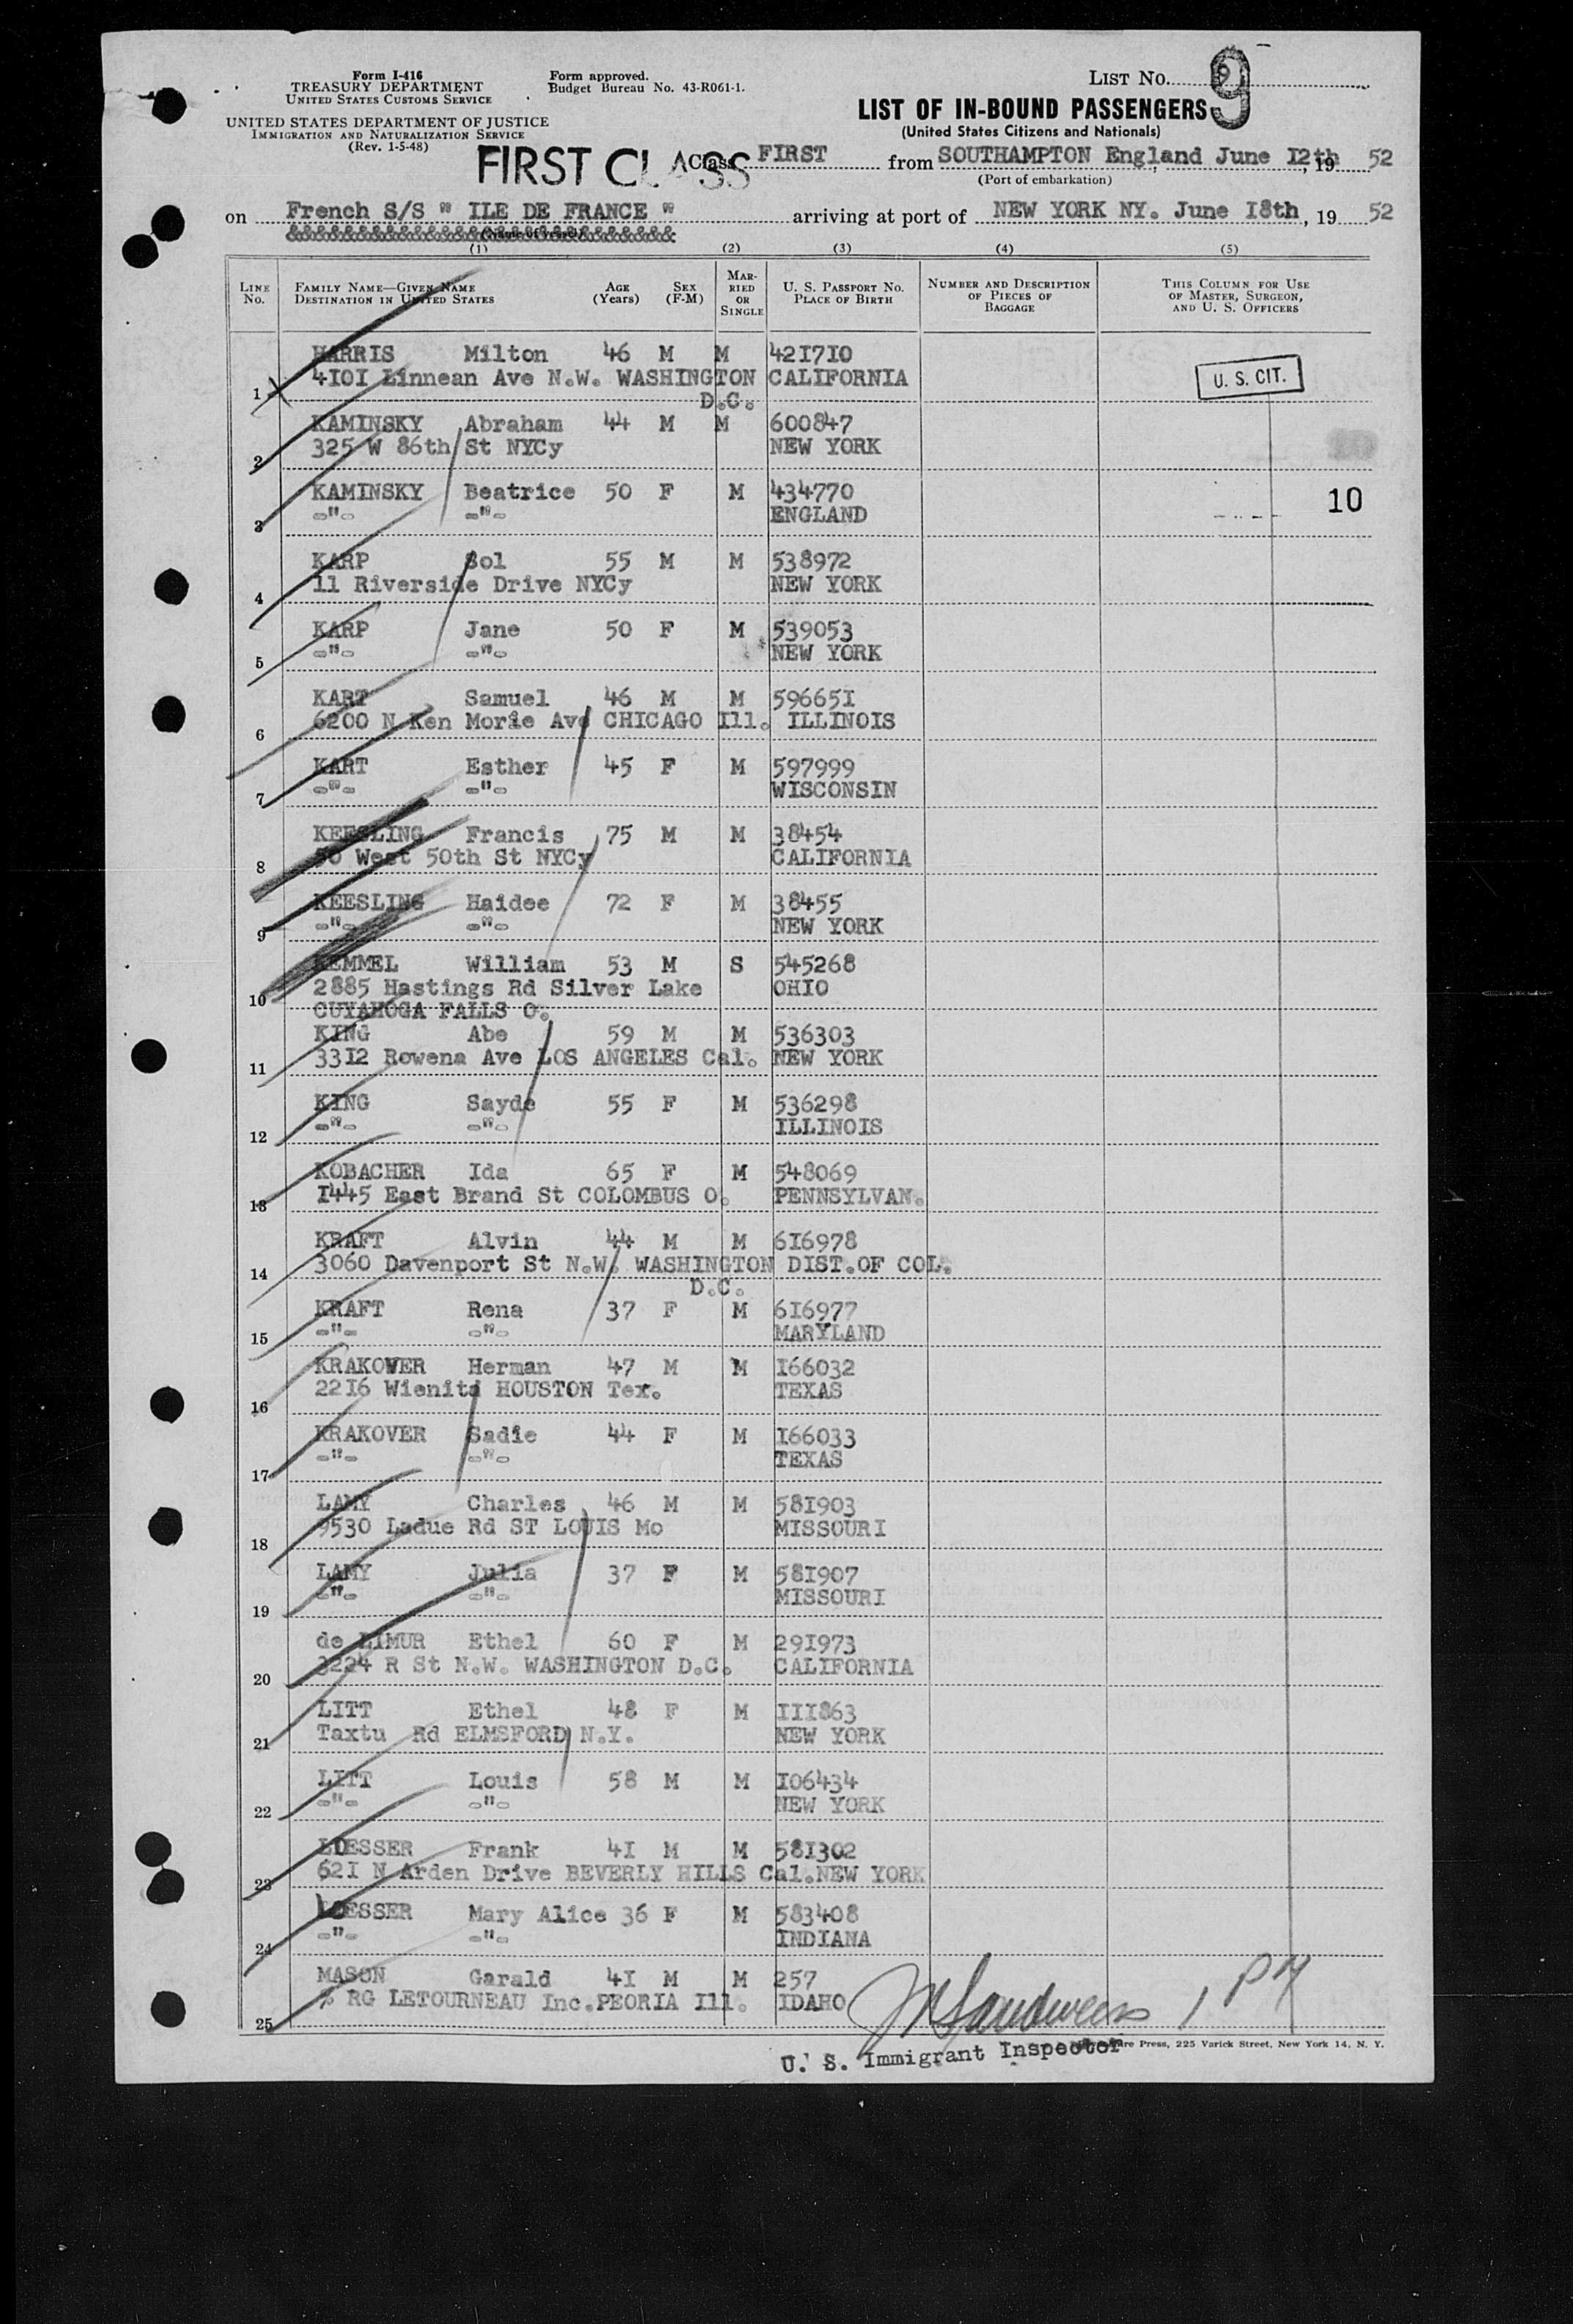 Form I-416
TREASURY DEPARTMENT
UNITED STATES CUSTOMS SERVICE
UNITED STATES DEPARTMENT OF JUSTICE
IMMIGRATION AND NATURALIZATION SERVICE
(Rev. 1-5-48)
Form approved.
Budget Bureau No. 43-R061-1.
LIST No. 9
LIST OF IN-BOUND PASSENGERS
(United States Citizens and Nationals)
FIRST CLASS Class FIRST from SOUTHAMPTON England June I2th, 19 52
(Port of embarkation)
on French S/S " ILE DE FRANCE " arriving at port of NEW YORK NY. June I8th, 19 52
(Name of vessel)
(1) (2) (3) (4) (5)
LINE No. FAMILY NAME—GIVEN NAME DESTINATION IN UNITED STATES AGE (Years) SEX (F-M) MARRIED OR SINGLE U. S. PASSPORT NO. PLACE OF BIRTH NUMBER AND DESCRIPTION OF PIECES OF BAGGAGE THIS COLUMN FOR USE OF MASTER, SURGEON, AND U. S. OFFICERS
HARRIS Milton 46 M M 42I7I0
1 4I0I Linnean Ave N.W. WASHINGTON CALIFORNIA U. S. CIT.
D.C.
KAMINSKY Abraham 44 M M 600847
2 325 W 86th St NYCy NEW YORK
KAMINSKY Beatrice 50 F M 434770 10
3 -"- -"- ENGLAND
KARP Sol 55 M M 538972
4 11 Riverside Drive NYCy NEW YORK
KARP Jane 50 F M 539053
5 -"- -"- NEW YORK
KART Samuel 46 M M 59665I
6 6200 N Ken Morie Ave CHICAGO Ill. ILLINOIS
KART Esther 45 F M 597999
7 -"- -"- WISCONSIN
KEESLING Francis 75 M M 38454
8 50 West 50th St NYCy CALIFORNIA
KEESLING Haidee 72 F M 38455
9 -"- -"- NEW YORK
KEMMEL William 53 M S 545268
10 2885 Hastings Rd Silver Lake OHIO
CUYAHOGA FALLS O.
KING Abe 59 M M 536303
11 33I2 Rowena Ave LOS ANGELES Cal. NEW YORK
KING Sayde 55 F M 536298
12 -"- -"- ILLINOIS
KOBACHER Ida 65 F M 548069
13 I445 East Brand St COLOMBUS O. PENNSYLVAN.
KRAFT Alvin 44 M M 6I6978
14 3060 Davenport St N.W. WASHINGTON DIST.OF COL.
D.C.
KRAFT Rena 37 F M 6I6977
15 -"- -"- MARYLAND
KRAKOVER Herman 47 M M I66032
16 22I6 Wienita HOUSTON Tex. TEXAS
KRAKOVER Sadie 44 F M I66033
17 -"- -"- TEXAS
LAMY Charles 46 M M 58I903
18 9530 Ladue Rd ST LOUIS Mo MISSOURI
LAMY Julia 37 F M 58I907
19 -"- -"- MISSOURI
de LIMUR Ethel 60 F M 29I973
20 3224 R St N.W. WASHINGTON D.C. CALIFORNIA
LITT Ethel 48 F M III863
21 Taxtu Rd ELMSFORD N.Y. NEW YORK
LITT Louis 58 M M I06434
22 -"- -"- NEW YORK
LOESSER Frank 4I M M 58I302
23 62I N Arden Drive BEVERLY HILLS Cal.NEW YORK
LOESSER Mary Alice 36 F M 583408
24 -"- -"- INDIANA
MASON Garald 4I M M 257
25 % RG LETOURNEAU Inc.PEORIA Ill. IDAHO
U. S. Immigrant Inspector
Press, 225 Varick Street, New York 14, N. Y.